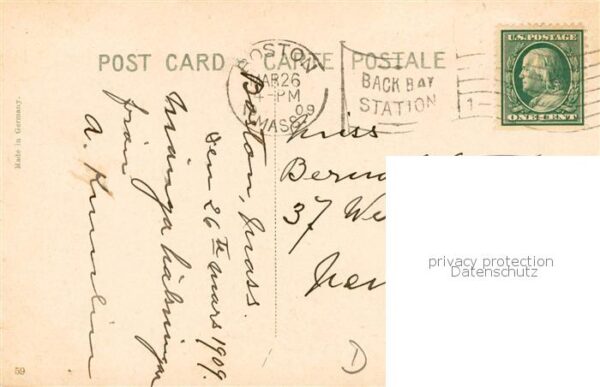 POST CARD
CARTE POSTALE
BOSTON
MAR 26
4-PM
09
MASS.
BACK BAY
STATION
U.S. POSTAGE
ONE CENT
Made in Germany.
Boston, Mass.
den 26te mars 1909.
Många hälsningar
från
A.
Miss
37 We
59
D
privacy protection
Datenschutz